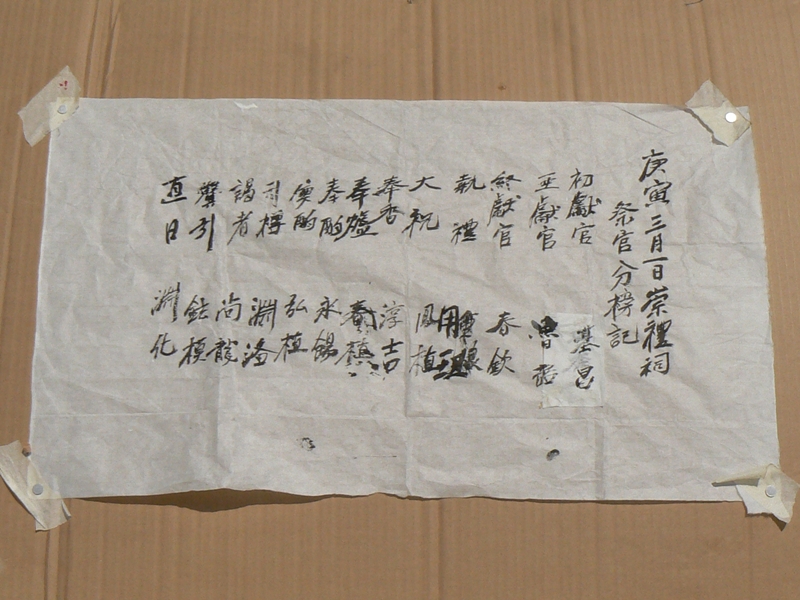 庚寅三月一日崇禮祠
祭官分榜記
初獻官 基昌
亞獻官 魯
終獻官 春欽
執禮
大祝 鳳植
奉香 淳吉
奉爐
奉酌 永錫
奠酌 弘植
司樽 淵洛
謁者 尚龍
贊引 鉉模
直日 淵化